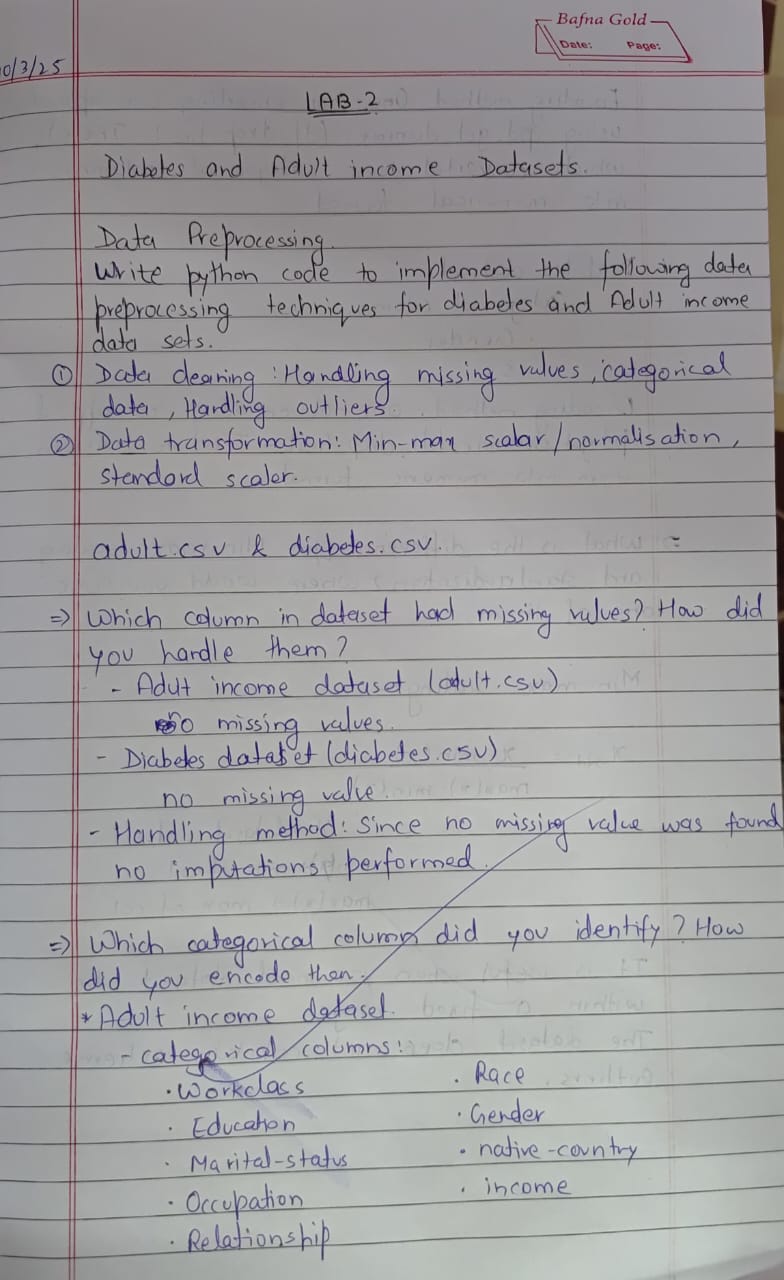 Bafna Gold
Date: Page:
0/3/25
LAB-2
Diabetes and Adult income Datasets.
Data Preprocessing.
Write python code to implement the following data
preprocessing techniques for diabetes and Adult income
data sets.
① Data cleaning : Handling missing values, categorical
data, Handling outliers.
② Data transformation: Min-max scalar/normalisation,
standard scaler.
adult.csv & diabetes.csv.
⇒ Which column in dataset had missing values? How did
you handle them?
- Adut income dataset (adult.csv)
no missing values.
- Diabetes dataset (diabetes.csv)
no missing value.
- Handling method: Since no missing value was found
no imputations performed.
⇒ Which categorical column did you identify? How
did you encode then.
* Adult income dataset.
- categorical columns:
· Workclass
· Education
· Marital-status
· Occupation
· Relationship
· Race
· Gender
· native-country
· income